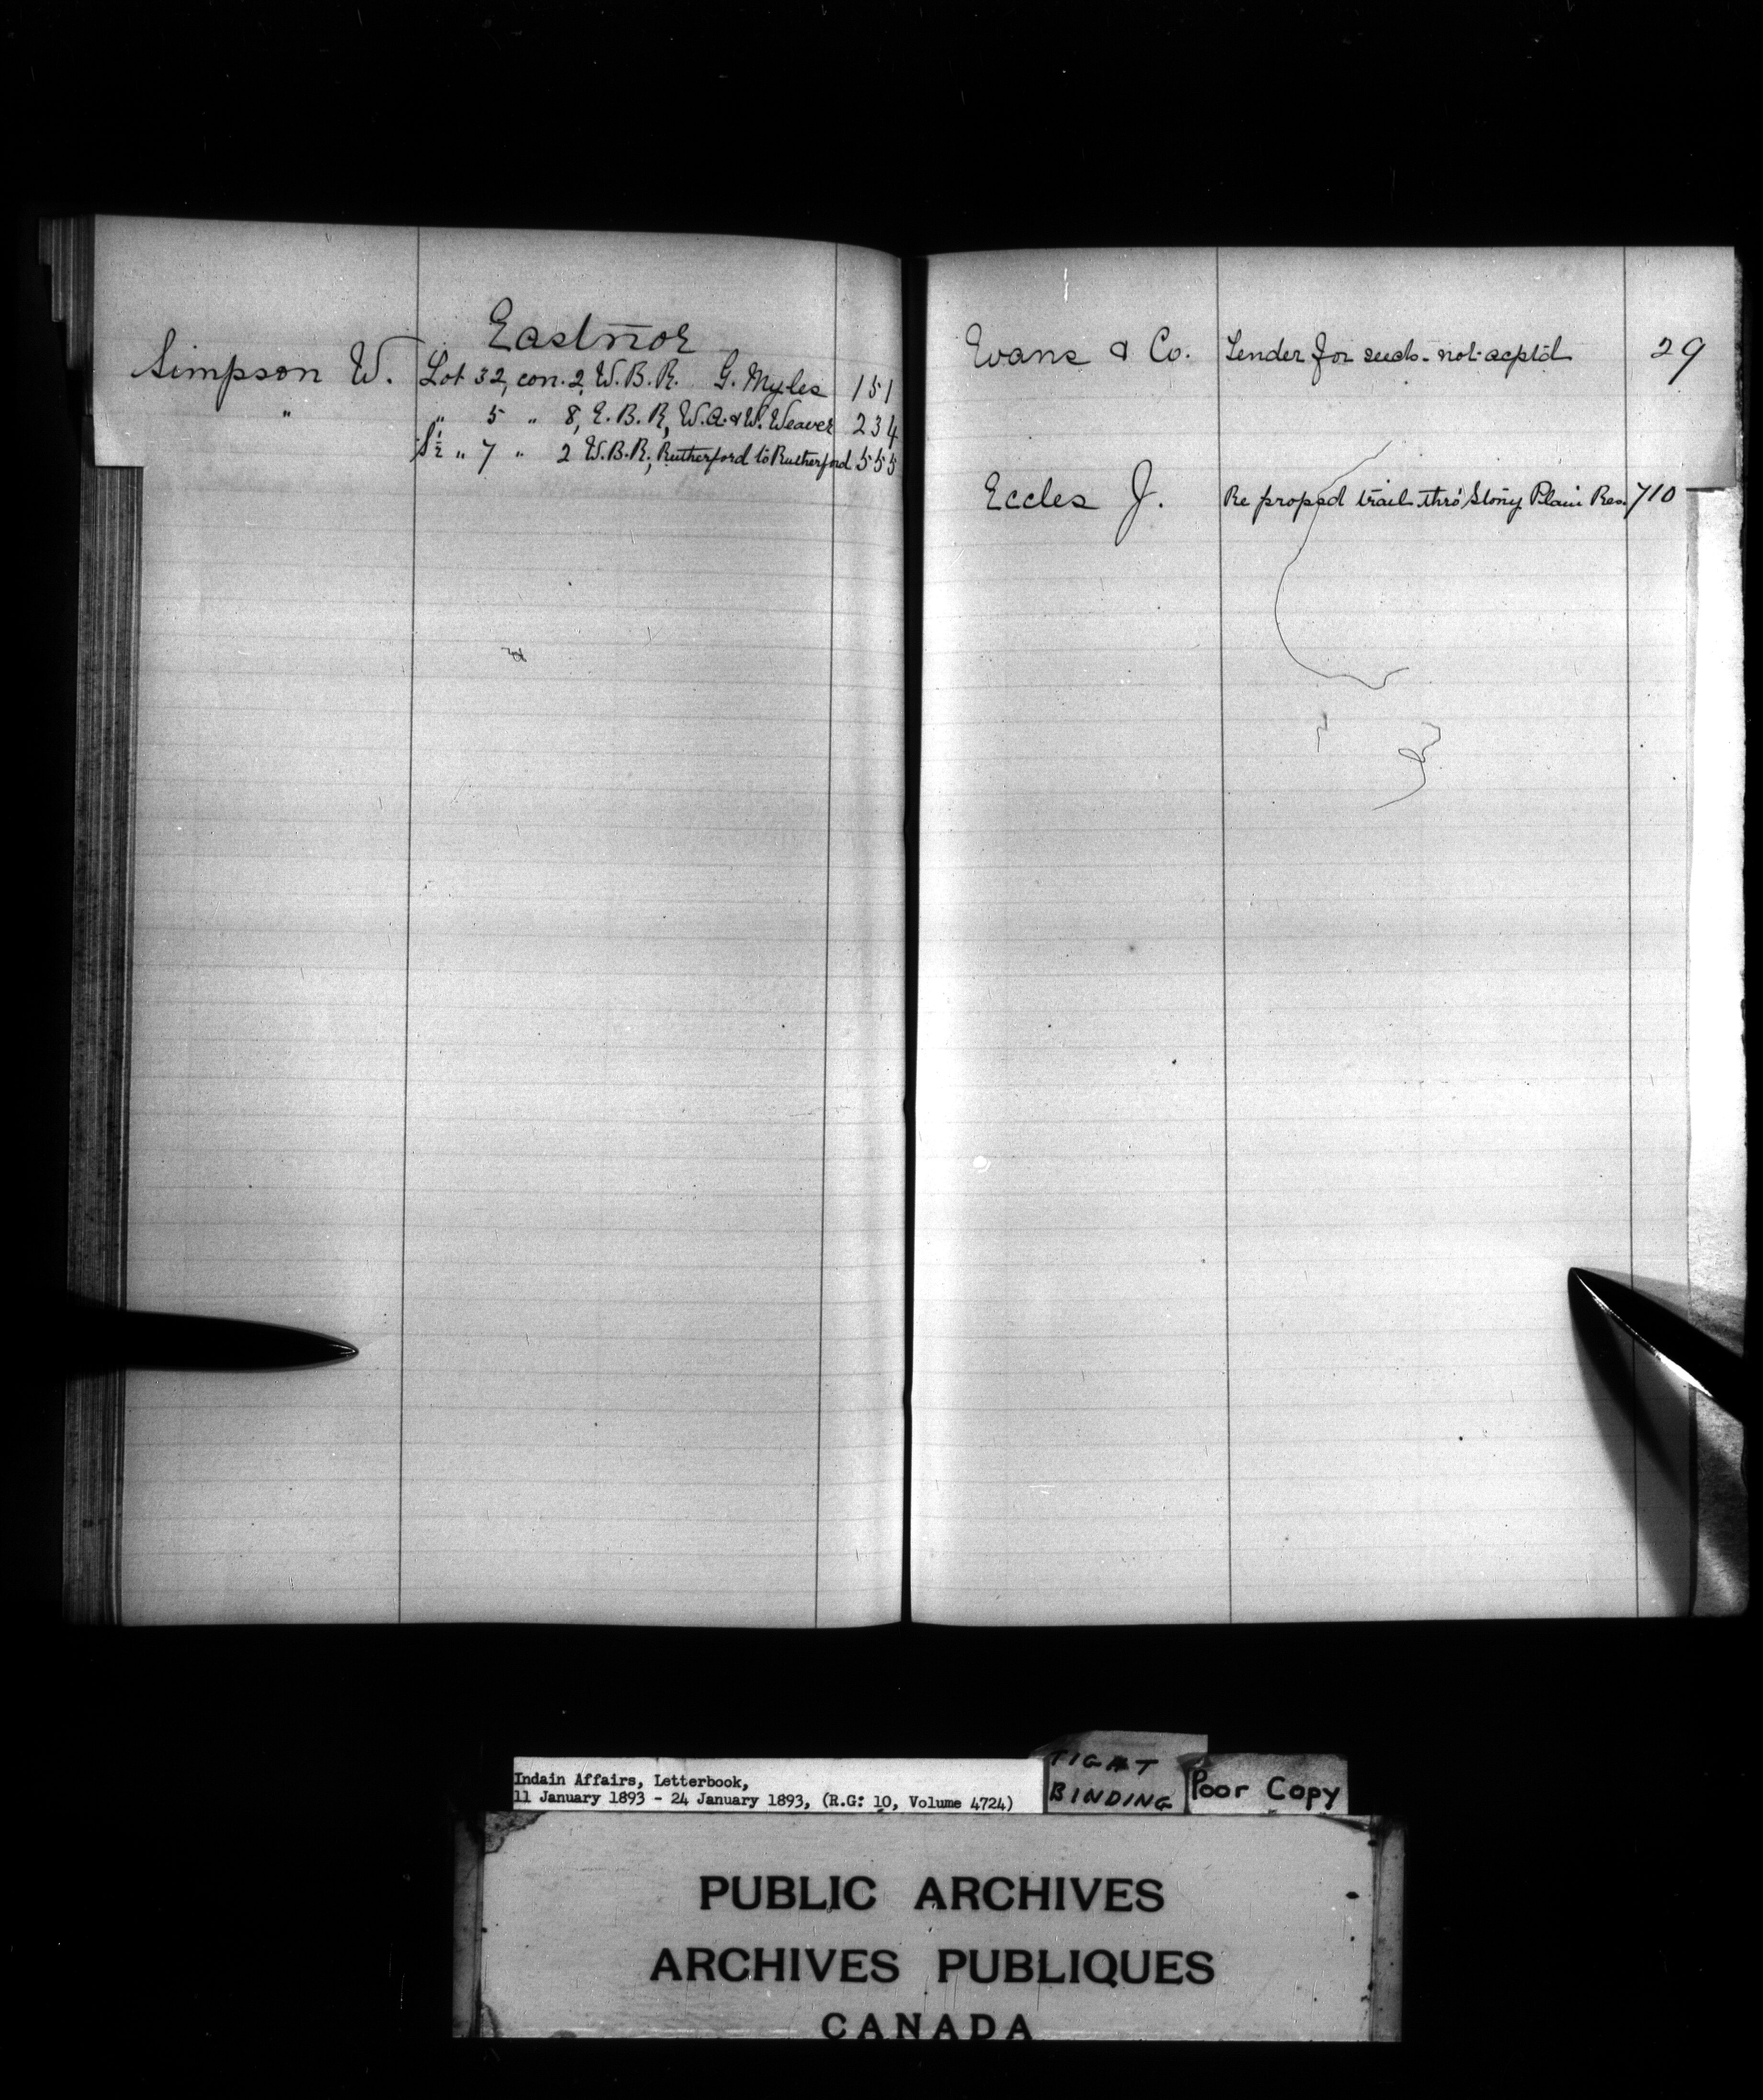 Eastnor
Simpson W. Lot 32, con. 2, W.B.R. G. Myles 151
" " 5 " 8, E.B.R, W.A. & W. Weaver 234
S½ " 7 " 2 W.B.R., Rutherford to Rutherford 555
Evans & Co. Tender for seeds - not acptd 29
Eccles J. Re propsd trail thro' Stony Plain Res. 710
Indain Affairs, Letterbook,
11 January 1893 - 24 January 1893, (R.G: 10, Volume 4724)
TIGHT
BINDING
Poor Copy
PUBLIC ARCHIVES
ARCHIVES PUBLIQUES
CANADA